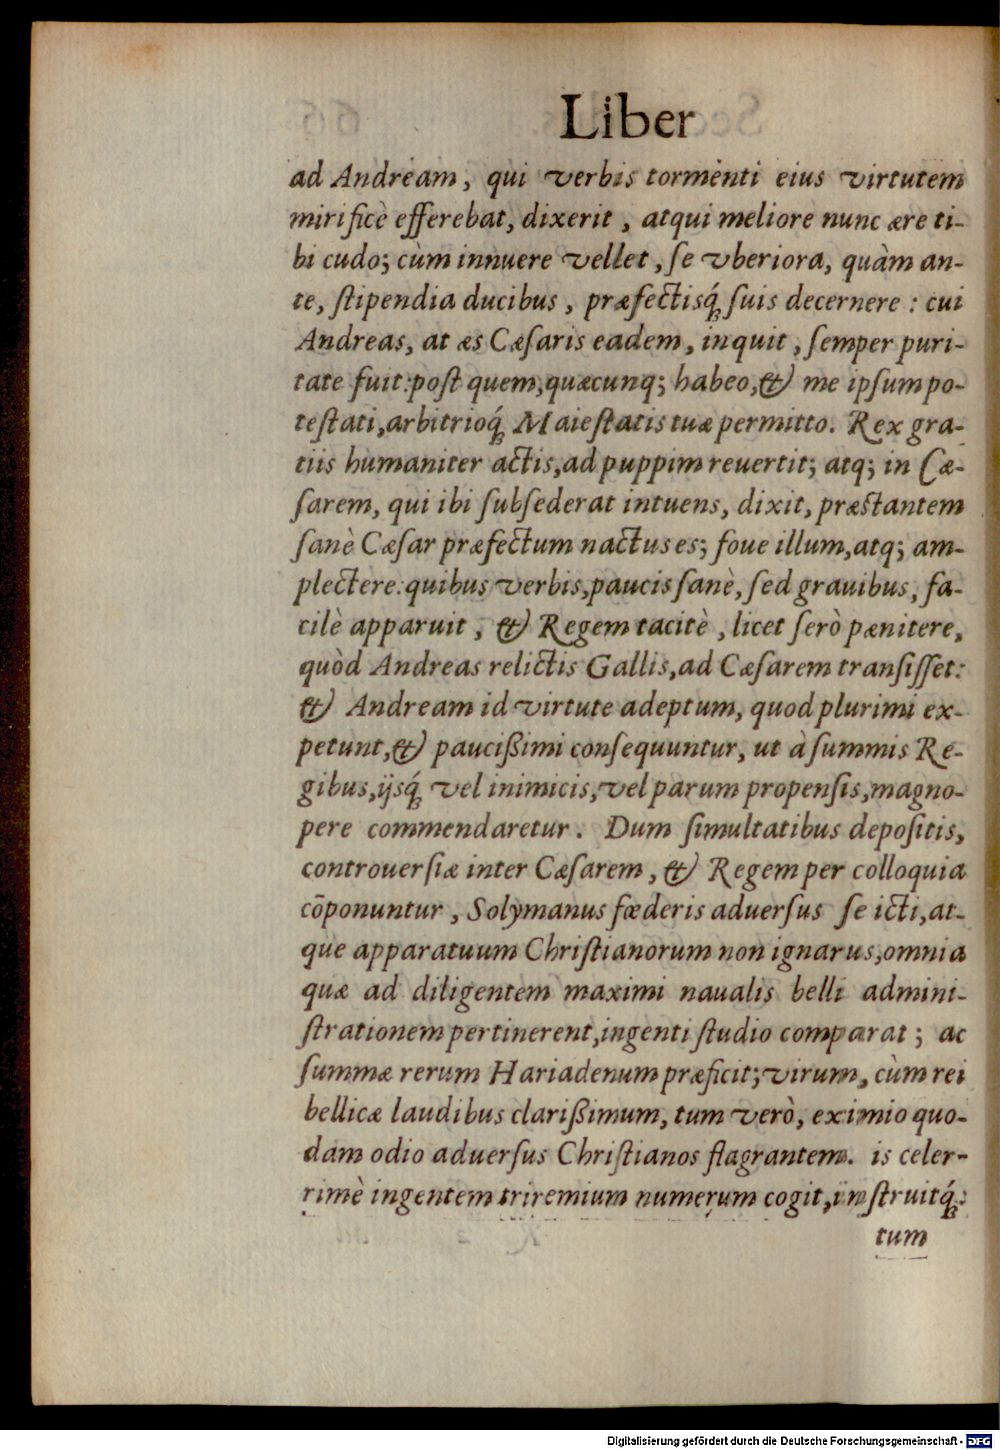 Liber
ad Andream, qui verbis tormenti eius virtutem
mirificè efferebat, dixerit, atqui meliore nunc ære ti-
bi cudo; cùm innuere vellet, ſe vberiora, quàm an-
te, ſtipendia ducibus, præfectisq́ꝫ ſuis decernere: cui
Andreas, at æs Cæſaris eadem, inquit, ſemper puri-
tate fuit: poſt quem, quæcunq; habeo, & me ipſum po-
teſtati, arbitrioq́ꝫ Maieſtatis tuæ permitto. Rex gra-
tiis humaniter actis, ad puppim reuertit; atq; in Cæ-
ſarem, qui ibi ſubſederat intuens, dixit, præſtantem
ſanè Cæſar præfectum nactus es; foue illum, atq; am-
plectere: quibus verbis, paucis ſanè, ſed grauibus, fa-
cilè apparuit, & Regem tacitè, licet ſerò pænitere,
quòd Andreas relictis Gallis, ad Cæſarem tranſiſſet:
& Andream id virtute adeptum, quod plurimi ex-
petunt, & paucißimi conſequuntur, ut à ſummis Re-
gibus, ijsq́ꝫ vel inimicis, vel parum propenſis, magno-
pere commendaretur. Dum ſimultatibus depoſitis,
controuerſiæ inter Cæſarem, & Regem per colloquia
cōponuntur, Solymanus fœderis aduerſus ſe icti, at-
que apparatuum Chriſtianorum non ignarus, omnia
quæ ad diligentem maximi naualis belli admini-
ſtrationem pertinerent, ingenti ſtudio comparat; ac
ſummæ rerum Hariadenum præficit; virum, cùm rei
bellicæ laudibus clarißimum, tum verò, eximio quo-
dam odio aduerſus Chriſtianos flagrantem. is celer-
rimè ingentem triremium numerum cogit, inſtruitq́ꝫ:
tum
Digitalisierung gefördert durch die Deutsche Forschungsgemeinschaft - DFG